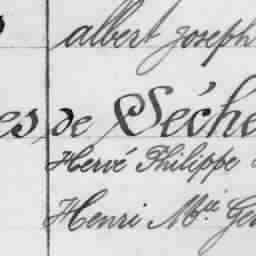 albert Joseph
es de Séche
Hervé Philippe
Henri M.ie Ge